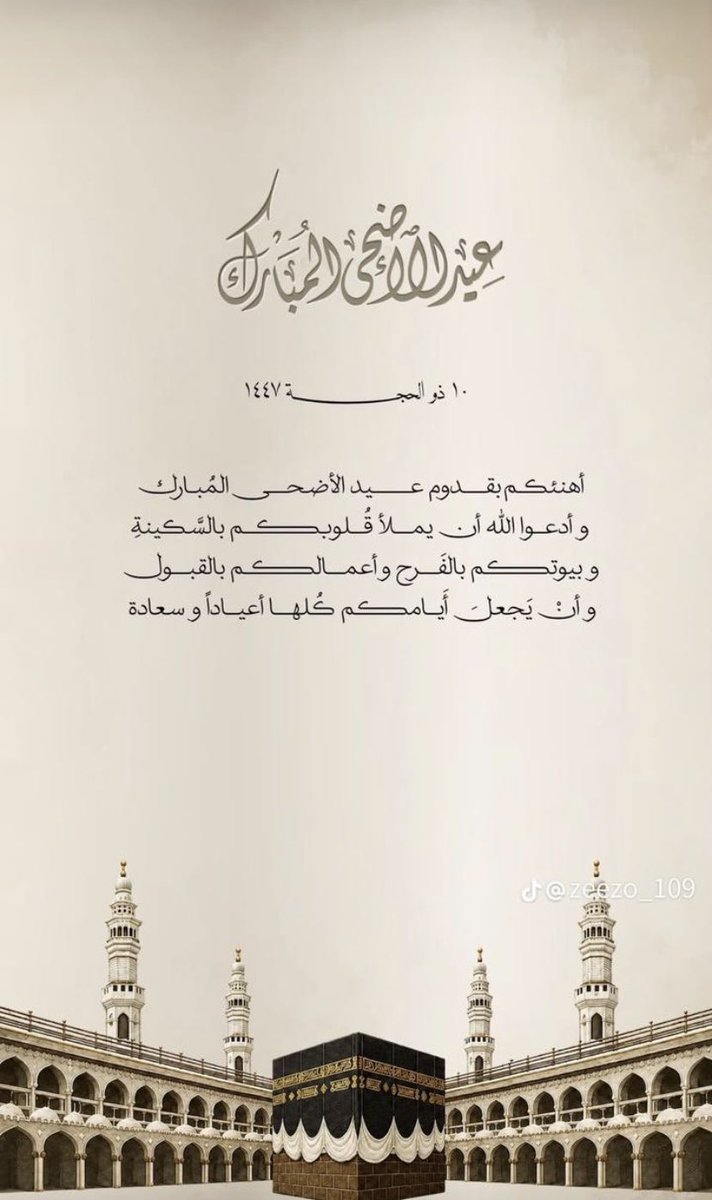 عِيدُ الأَضْحَى المُبَارَك
١٠ ذو الحجـــة ١٤٤٧
أهنئكم بقـدوم عـــيد الأضحــى المُبارك
و أدعـوا الله أن يمـلأ قُـلوبكـــم بالسَّكينةِ
و بيوتكــم بالفَــرح و أعمـالكــم بالقبـول
و أنْ يَجعلَ أَيامكـم كُلهـا أعيـاداً و سعادة
@zeezo_109